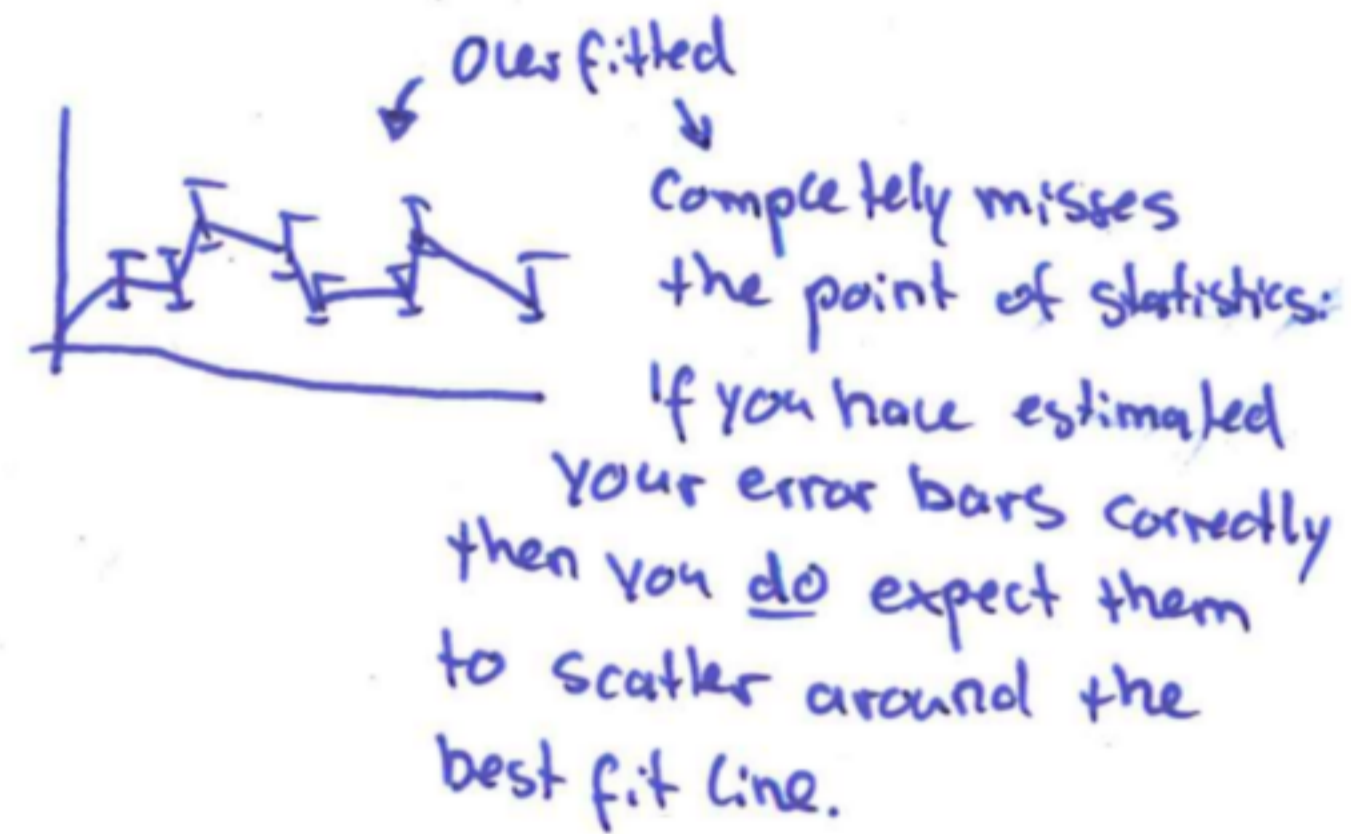 Overfitted
Completely misses
the point of statistics:
If you have estimated
your error bars correctly
then you do expect them
to scatter around the
best fit line.